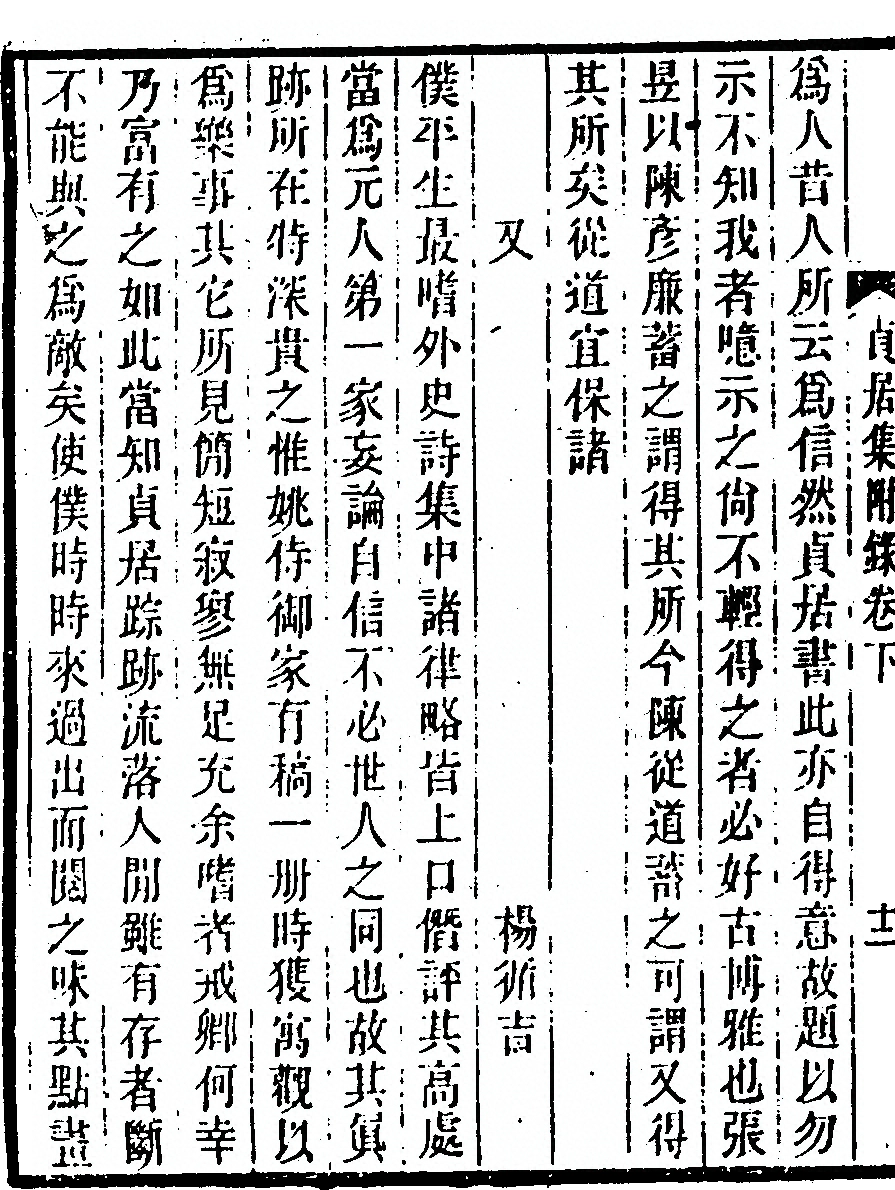 貞居集附錄卷下 十二
爲人昔人所云爲信然貞居書此亦自得意故題以勿
示不知我者噫示之尙不輕得之者必好古博雅也張
昱以陳彥廉蓄之謂得其所今陳從道蓄之可謂又得
其所矣從道宜保諸
又 楊循吉
僕平生最嗜外史詩集中諸律略皆上口僭評其高處
當爲元人第一家妄論自信不必世人之同也故其眞
跡所在特深貴之惟姚侍御家有稿一册時獲寓觀以
爲樂事其它所見簡短寂寥無足充余嗜者戒卿何幸
乃富有之如此當知貞居踪跡流落人閒雖有存者斷
不能與之爲敵矣使僕時時來過出而閱之味其點畫